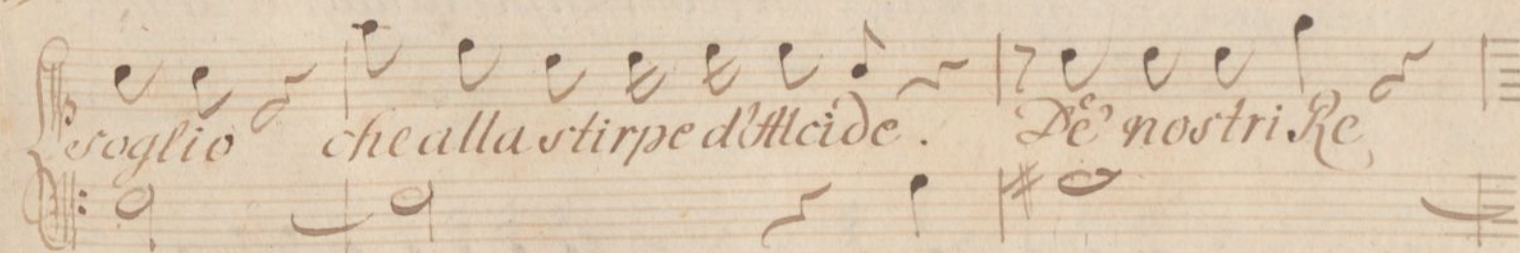 soglio che alla stirpe d'Alcide. De' nostri Re,